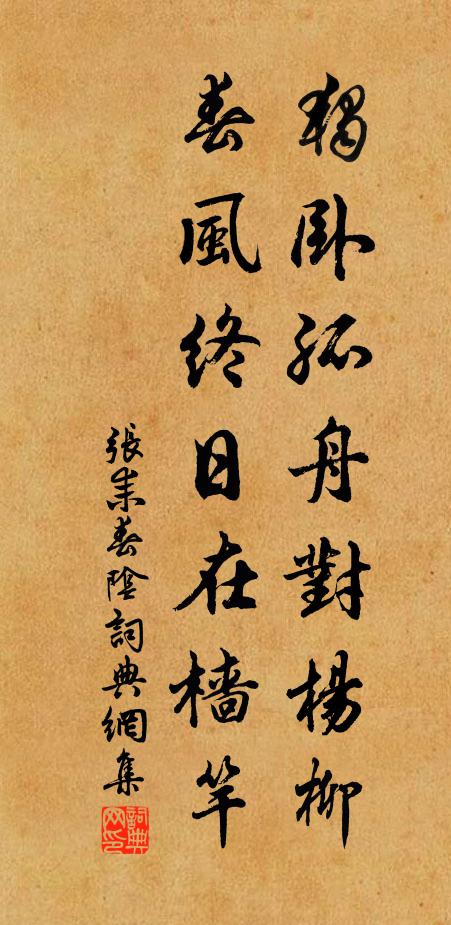 獨卧孤舟對楊柳
春風終日在檣竿
張耒春陰詞典網集
詞典網印